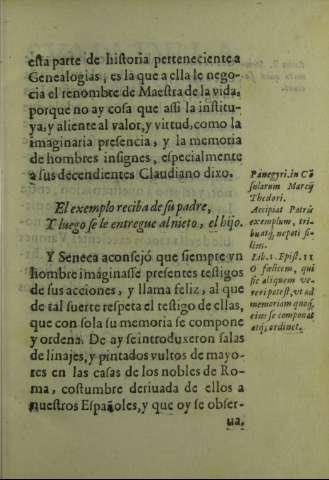 esta parte de historia perteneciente a
Genealogias, es la que a ella le nego-
cia el renombre de Maestra de la vida,
porque no ay cosa que assi la institu-
ya, y aliente al valor, y virtud, como la
imaginaria presencia, y la memoria
de hombres insignes, especialmente
a sus decendientes Claudiano dixo.
El exemplo reciba de su padre,
Y luego se le entregue al nieto, el hijo.
Y Seneca aconsejó que siempre vn
hombre imaginasse presentes testigos
de sus acciones, y llama feliz, al que
de tal suerte respeta el testigo de ellas,
que con sola su memoria se compone
y ordena. De ay se introduxeron salas
de linajes, y pintados vultos de mayo-
res en las casas de los nobles de Ro-
ma, costumbre deriuada de ellos a
nuestros Españoles, y que oy se obser-
ua.
Panegyri. in Cō
sularum Marcij
Thedori.
Accipiat Patris
exemplum, tri-
buatq́, nepoti fi-
lius.
Lib. 1. Epist. 11
O fœlicem, qui
sic aliquem ve-
reri potest, vt ad
memoriam quoq́,
eius se componat
atq́, ordinet.